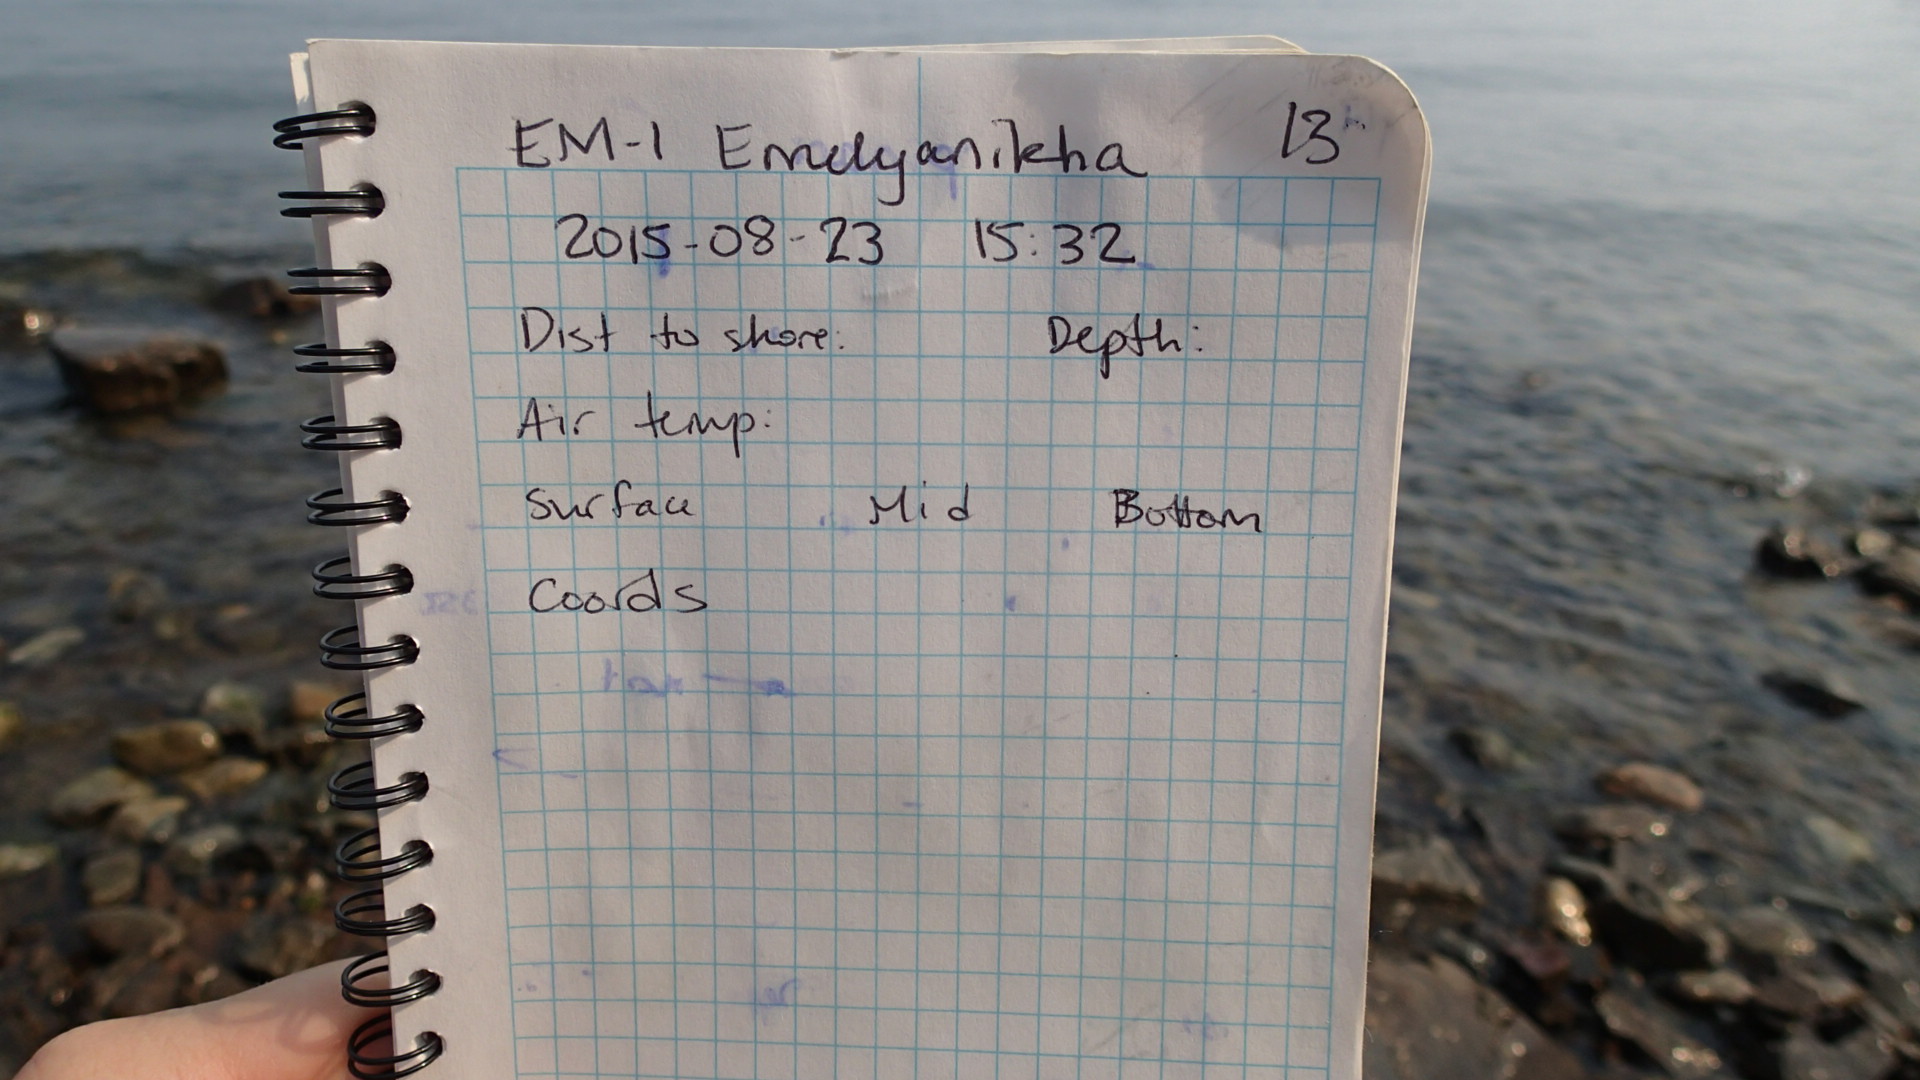 EM-1 Emelyanikha 13
2015-08-23 15:32
Dist to shore: Depth:
Air temp:
Surface Mid Bottom
Coords